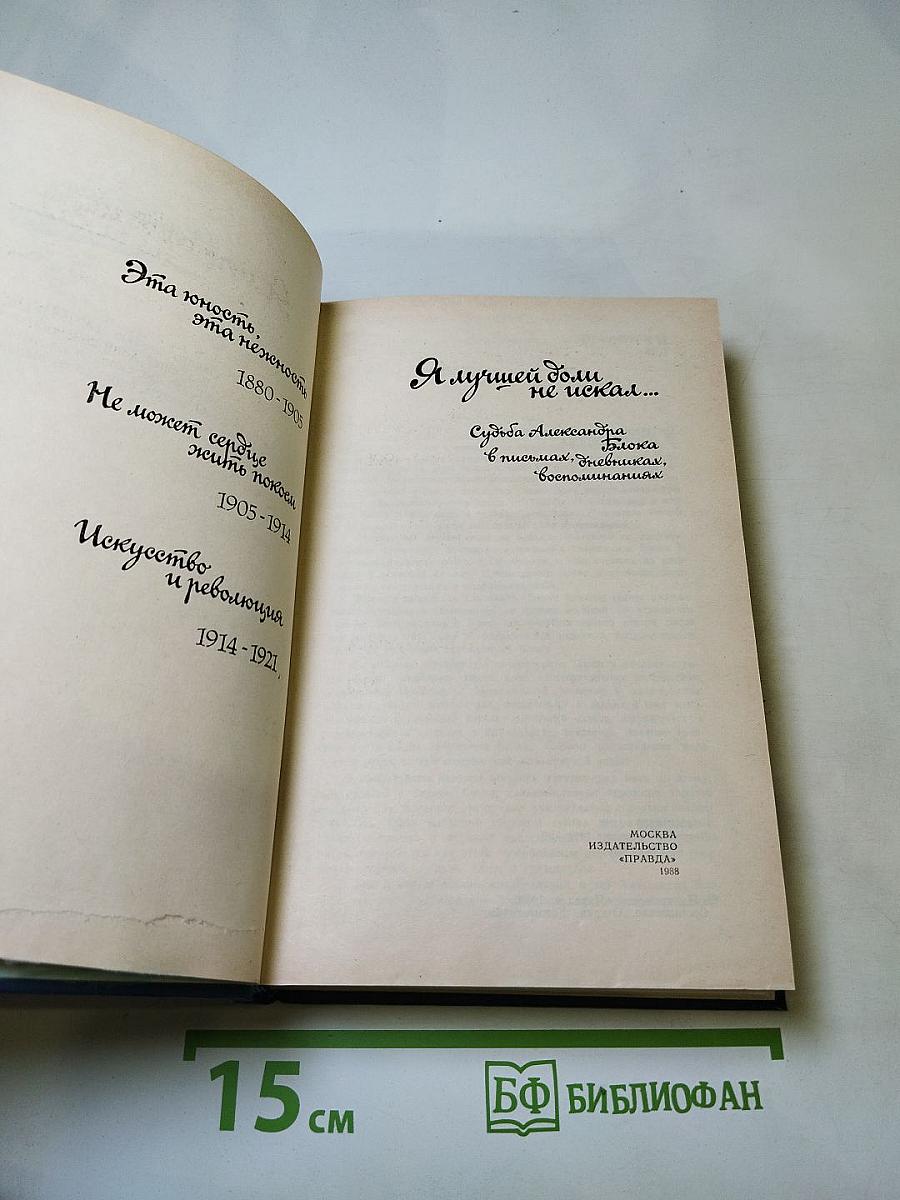 Эта юность,
эта нежность
1880-1905
Не может сердце
жить покоем
1905-1914
Искусство
и революция
1914-1921
Я лучшей доли
не искал...
Судьба Александра
Блока
в письмах, дневниках,
воспоминаниях
МОСКВА
ИЗДАТЕЛЬСТВО
«ПРАВДА»
1988
15 см
БФ БИБЛИОФАН